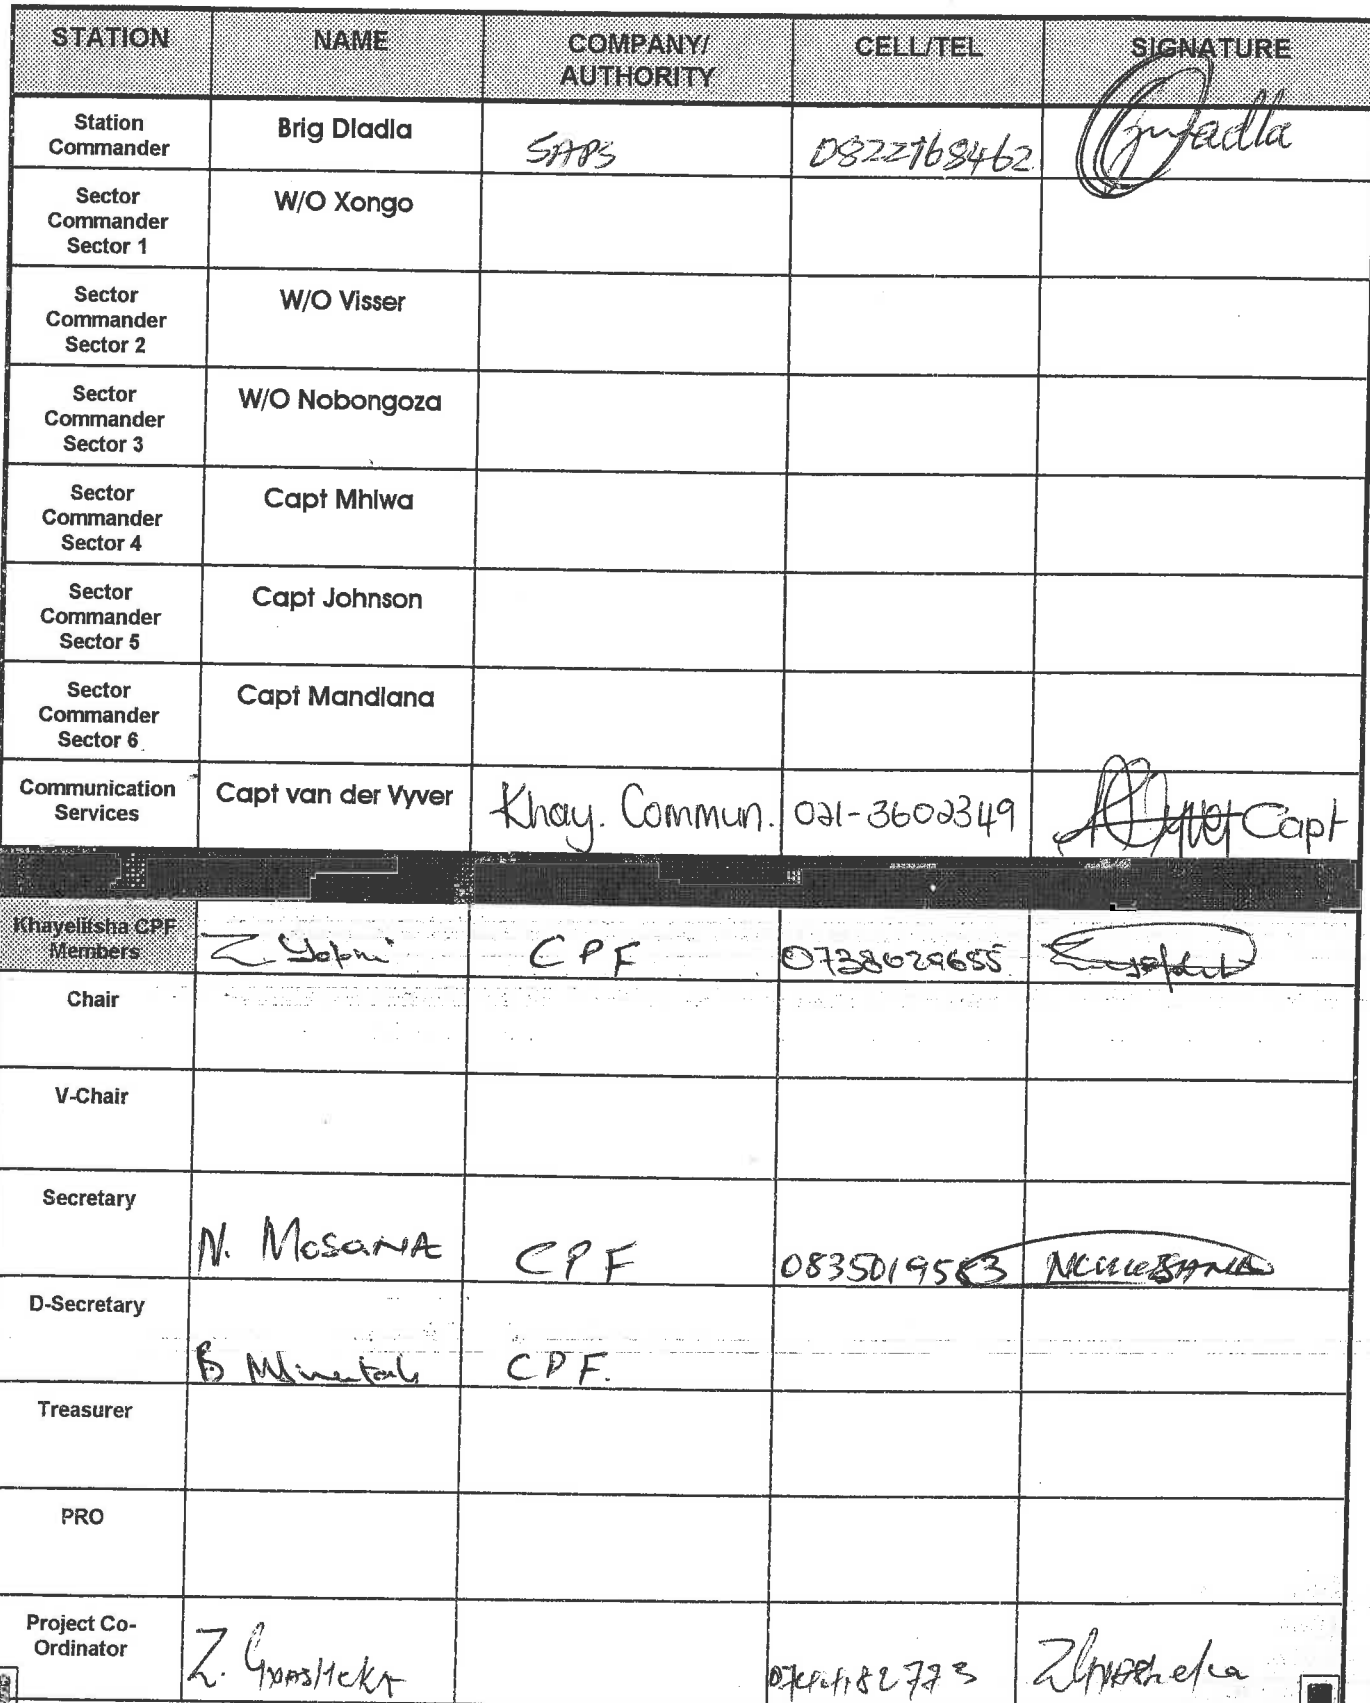 STATION NAME COMPANY/ AUTHORITY CELL/TEL SIGNATURE
Station Commander Brig Dladla SAPS 0822768462
Sector Commander Sector 1 W/O Xongo
Sector Commander Sector 2 W/O Visser
Sector Commander Sector 3 W/O Nobongoza
Sector Commander Sector 4 Capt Mhlwa
Sector Commander Sector 5 Capt Johnson
Sector Commander Sector 6 Capt Mandlana
Communication Services Capt van der Vyver Khay. Commun. 021-3602349 Capt
Khayelitsha CPF Members Z. CPF 0738629655
Chair
V-Chair
Secretary N. Mosana CPF
D-Secretary B CPF.
Treasurer
PRO
Project Co-Ordinator Z.